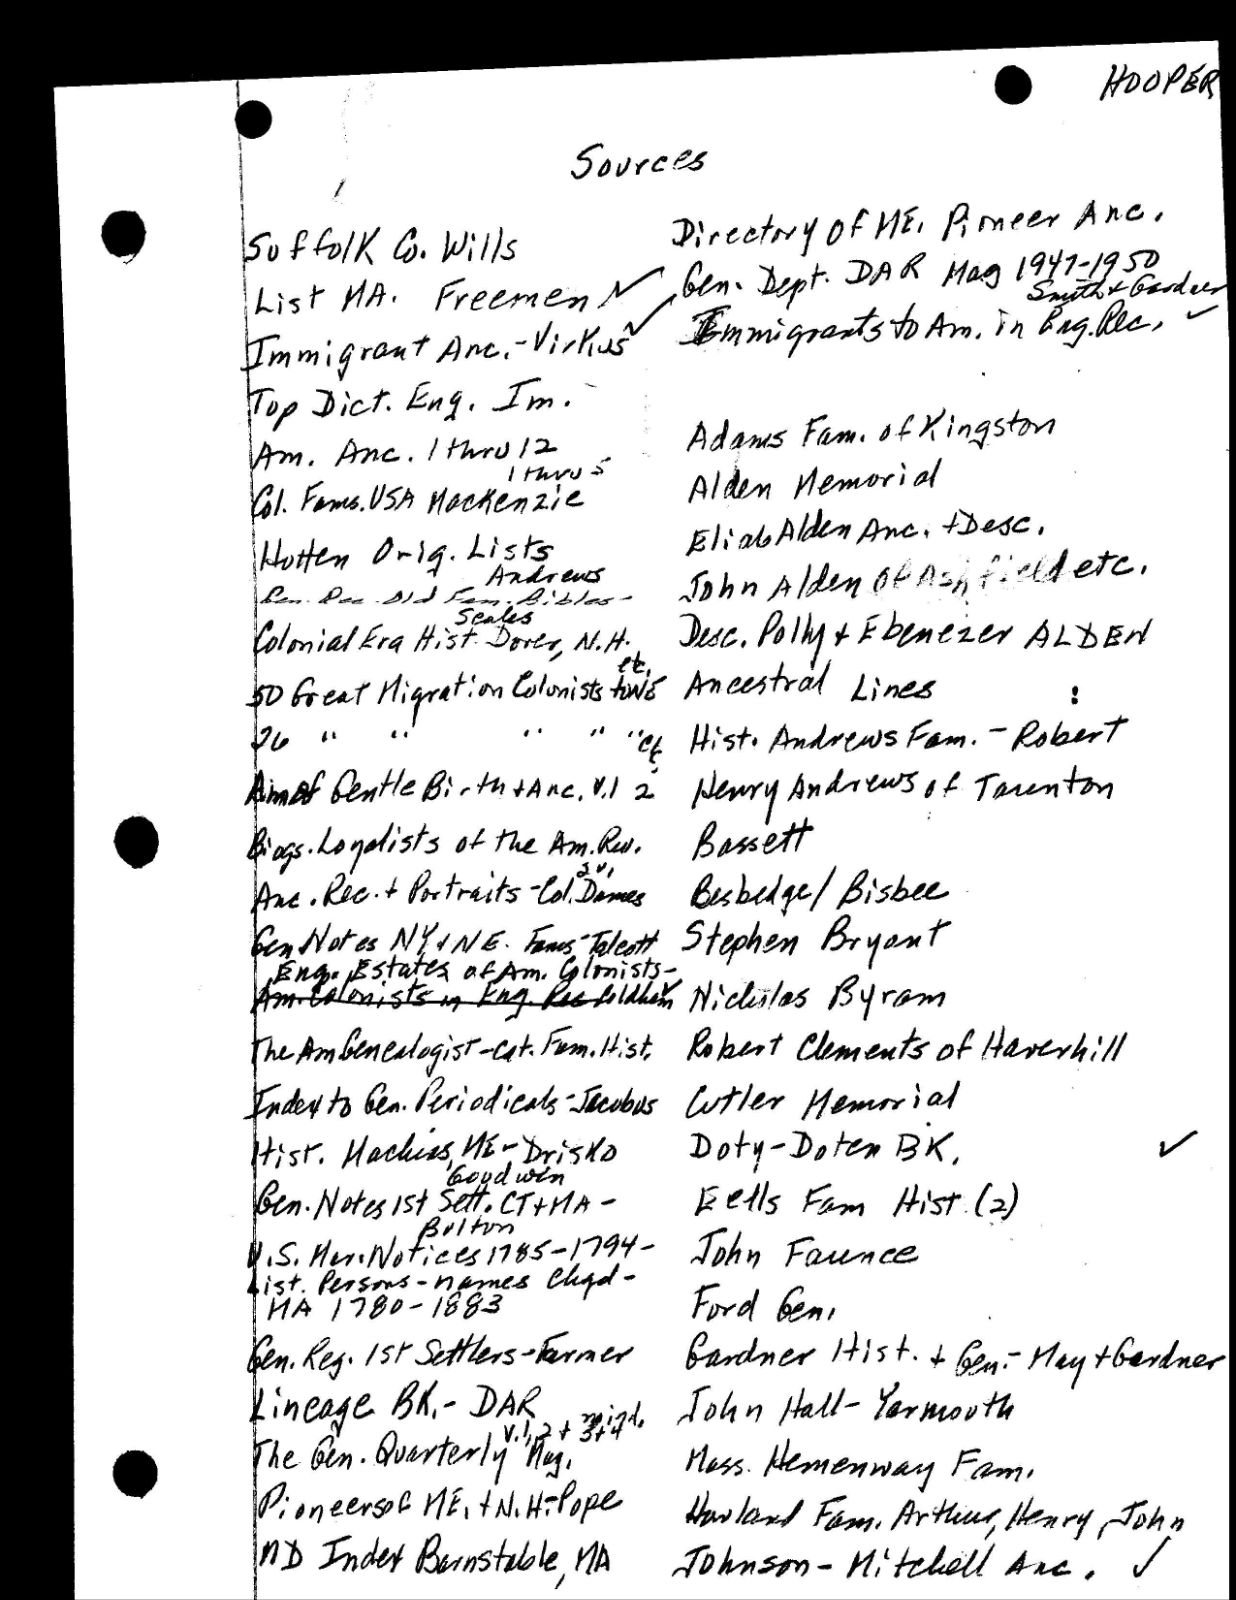 HOOPER
Sources
Suffolk Co. Wills
List MA. Freemen ✓
Immigrant Anc.-Virkus ✓
Top Dict. Eng. Im.
Am. Anc. 1 thru 12
1 thru 5
Col. Fams. USA MacKenzie
Hotten Orig. Lists
Andrews
Old Fam. Bibles-
Scales
Colonial Era Hist. Dover, N.H.
etc.
50 Great Migration Colonists to NE
26 " " " " "
of Gentle Birth + Anc. v.1 2
Biogs. Loyalists of the Am. Rev.
2 v.
Anc. Rec. + Portraits-Col. Dames
Gen Notes NY + NE. Fams-Talcott
Eng. Estates of Am. Colonists-
Am. Colonists in Eng Rec Coldham
The Am Genealogist-Cat. Fam. Hist.
Index to Gen. Periodicals-Jacobus
Hist. Machias, ME-Drisko
Goodwin
Gen. Notes 1st Sett. CT + MA-
Bolton
U.S. Mar. Notices 1785-1794-
List. Persons-names chgd-
MA 1780-1883
Gen. Reg. 1st Settlers-Farmer
Lineage BK.- DAR
v.1, 2 + 3+4
The Gen. Quarterly Mag.
Pioneers of ME. + N.H-Pope
ND Index Barnstable, MA
Directory of ME. Pioneer Anc.
Gen. Dept. DAR Mag 1947-1950
Smith + Gardner
Immigrants to Am. in Eng. Rec. ✓
Adams Fam. of Kingston
Alden Memorial
Eliab Alden Anc. + Desc.
John Alden of Ashfield etc.
Desc. Polly + Ebenezer ALDEN
Ancestral Lines :
Hist. Andrews Fam. - Robert
Henry Andrews of Taunton
Bassett
Besbedge/Bisbee
Stephen Bryant
Nicholas Byram
Robert Clements of Haverhill
Cutler Memorial
Doty-Doten BK. ✓
Eells Fam Hist. (2)
John Faunce
Ford Gen.
Gardner Hist. + Gen.- May + Gardner
John Hall- Yarmouth
Mass. Hemenway Fam.
Howland Fam. Arthur, Henry, John
Johnson- Mitchell Anc. ✓